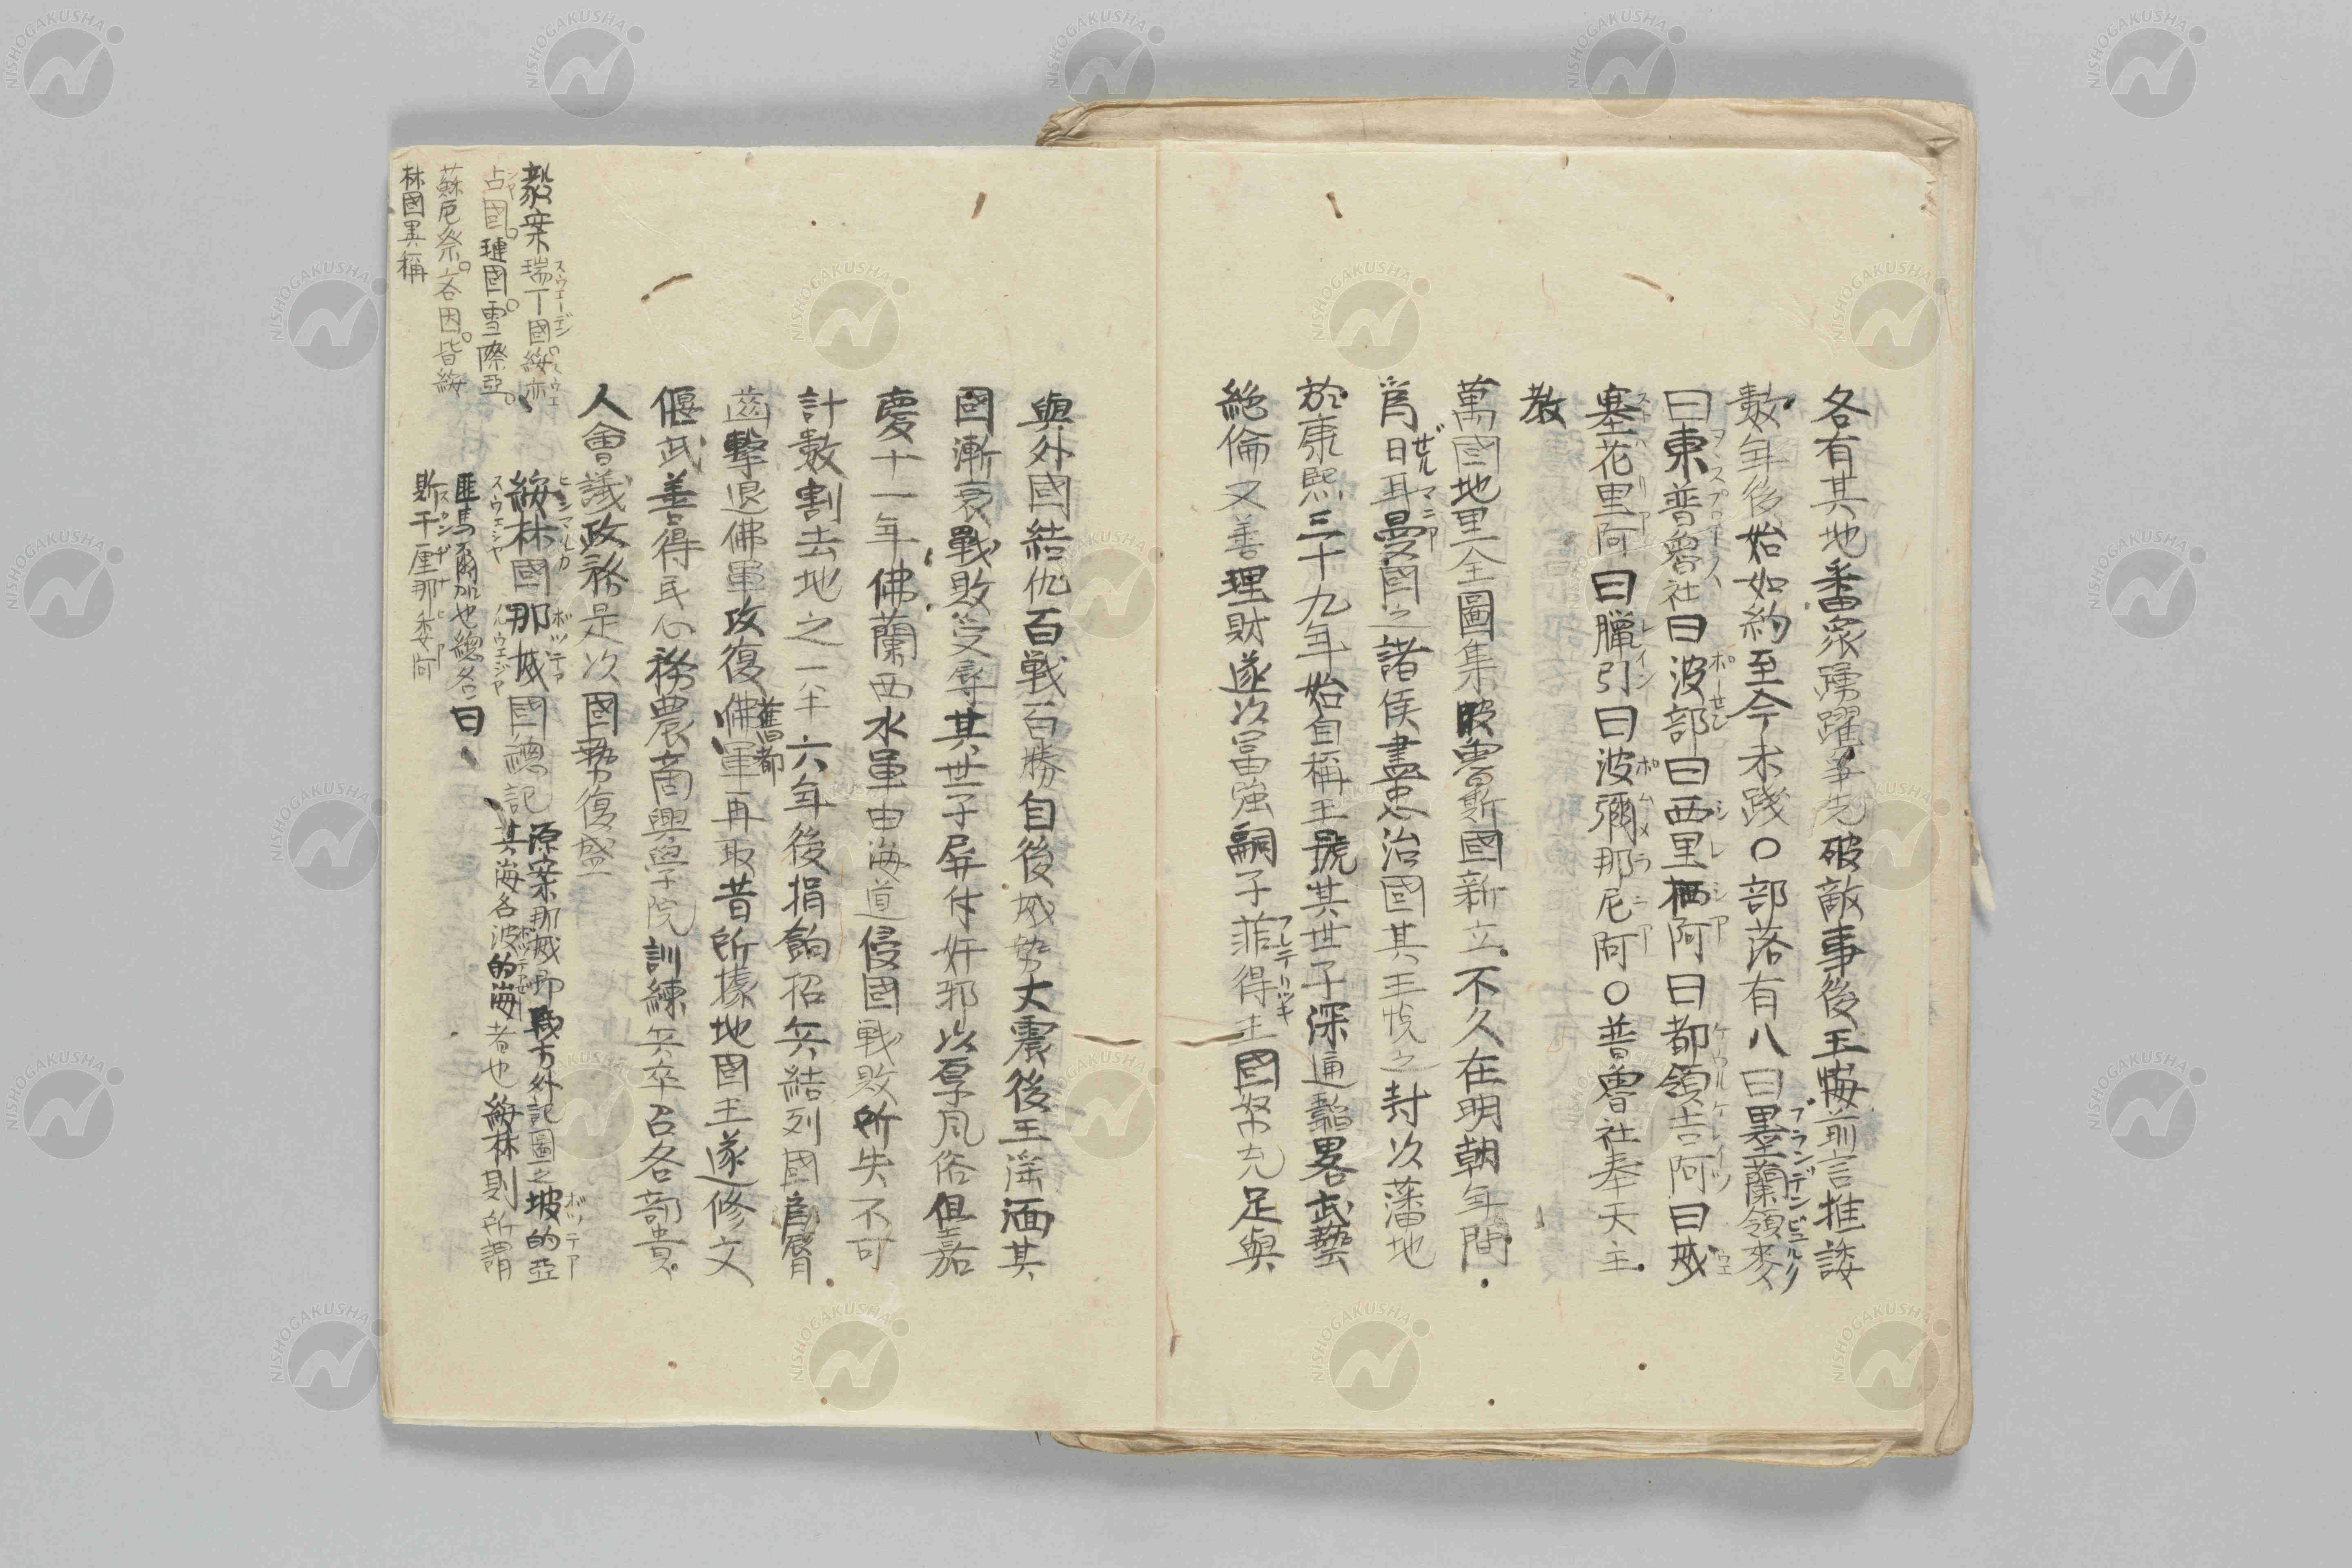 各有其地番衆踴躍爭先破敵事後王悔前言推諉
數年後始如約至今未踐〇部落有八曰墨蘭領麥
曰東普魯社曰波部曰西里栖阿曰都領吉阿曰威
塞花里阿曰臘引曰波彌那尼阿〇普魯社奉天主
教
萬國地里全圖集 普魯斯國新立不久在明朝年間
爲日耳曼國之諸侯盡忠治國其王悅之封次藩地
於康熙三十九年始自稱王號其世子深通韜畧武藝
絶倫又善理財遂次富強嗣子菲得王國帑充足與
與外國結仇百戰百勝自後威勢大震後王淫湎其
國漸衰戰敗受辱其世子屏侍奸邪以厚風俗但嘉
慶十一年佛蘭西水軍由海道侵國戰敗所失不可
計數割去地之一半六年後捐餉招兵結列國爲脣
齒擊退佛軍攻復舊都佛軍再取昔所據地國王遂修文
偃武善得民心務農商興學院訓練兵卒召各部貴
人會議政務是次國勢復盛
綏林國那威國總記
源案那威即職方外記圖之坡的亞
其海名波的海者也綏林則所謂
匪馬爾加也總名曰
斯干厘那委阿
毅案瑞丁國綏亦
占國璉國雪際亞
蘇厄祭 名因皆綏
林國異稱
スウエーデン
ブランデンビュルク
ヲスプロイスハ
ポーセン
シレシア
レイン
ポムメラニア
ゼルマニア
フレデリッキ
ボツテア
NISHOGAKUSHA